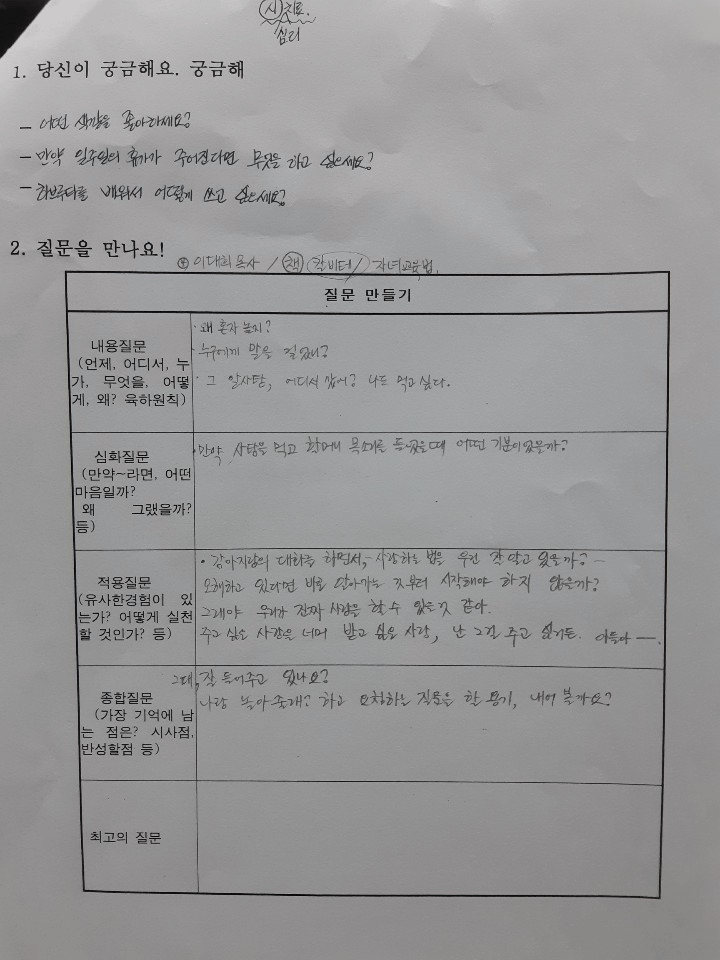 시 치료.
심리
1. 당신이 궁금해요. 궁금해
- 어떤 색깔을 좋아하세요?
- 만약 일주일의 휴가가 주어진다면 무엇을 하고 싶으세요?
- 하브루타를 배워서 어떻게 쓰고 싶으세요?
2. 질문을 만나요!
이대희 목사 / 책 (칼비테/) 자녀교육법.
질문 만들기
내용질문
(언제, 어디서, 누
가, 무엇을, 어떻
게, 왜? 육하원칙)
· 왜 혼자 놀지?
· 누구에게 말을 걸었니?
· 그 알사탕, 어디서 샀어? 나도 먹고싶다.
심화질문
(만약~라면, 어떤
마음일까?
왜 그랬을까?
등)
· 만약 사탕을 먹고 할머니 목소리를 들었을때 어떤 기분이었을까?
적용질문
(유사한경험이 있
는가? 어떻게 실천
할 것인가? 등)
· 강아지랑의 대화를 하면서, - 사랑하는 법을 우린 잘 알고 있을까? -
오해하고 있다면 바로 알아가는 것부터 시작해야 하지 않을까?
그래야 우리가 진짜 사랑을 할 수 있을것 같아.
주고 싶은 사랑을 너머 받고 싶은 사랑, 난 그걸 주고 싶거든. 아들아 ―.
종합질문
(가장 기억에 남
는 점은? 시사점,
반성할점 등)
그대, 잘 들어주고 있나요?
나랑 놀아줄래? 하고 요청하는 질문을 할 용기, 내어 볼까요?
최고의 질문